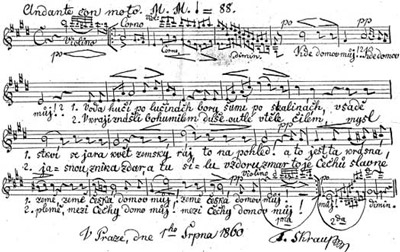 Andante con moto. M. M. ♩ = 88.
Corno
Violino
po
pp
Corni
Dimin.
Kde domov můj!? Kde domov
můj!? 1. Voda hučí po lučinách bory šumí po skalinách, v sadě
2. V kraji znáš-li Bohumilém duše outlé v těle čilém, mysl
1. stkví se jara květ zemský ráj to na pohled! a to jest ta krásná
2. jasnou, znik a zdar, a tu sílu vzdoru zmar to je Čechů slavné
Violino
1. země, země česká domov můj, země česká domov můj!
2. plémě, mezi Čechy domov můj mezi Čechy domov můj!
1ma
2da
dimin.
V Praze, dne 1ho Srpna 1860